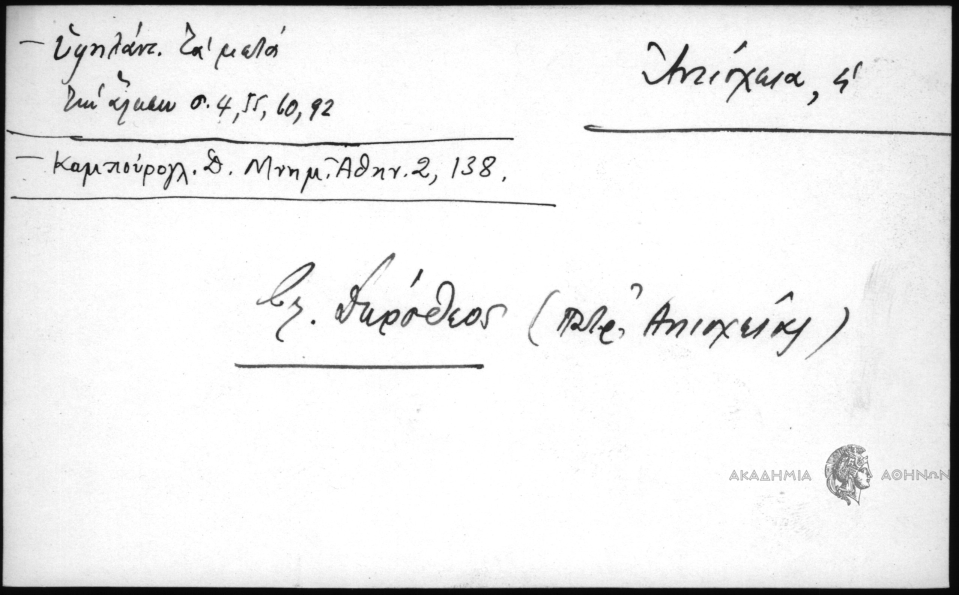 — Ὑψηλάντ. Τὰ μετὰ
τὴν ἅλωσιν σ. 4, 55, 60, 92
Ἀντιόχεια, ἡ
— Καμπούρογλ. Δ. Μνημ. Ἀθην. 2, 138.
Βλ. Δωρόθεος (πατρ. Ἀντιοχείας)
ΑΚΑΔΗΜΙΑ ΑΘΗΝΩΝ